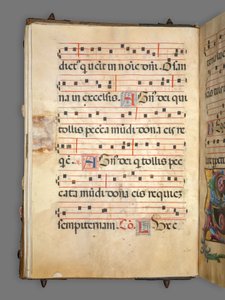 dict⁹ q̃ uẽit in nõie dñi. Osan
na in excelsis. Agn⁹ dei qui
tollis pecc̃a mũdi dona eis re
q̃e. Agn⁹ dei q̃ tollis pec
cata mũdi dona eis requiẽ
sempiternam. Cõ. Lux e